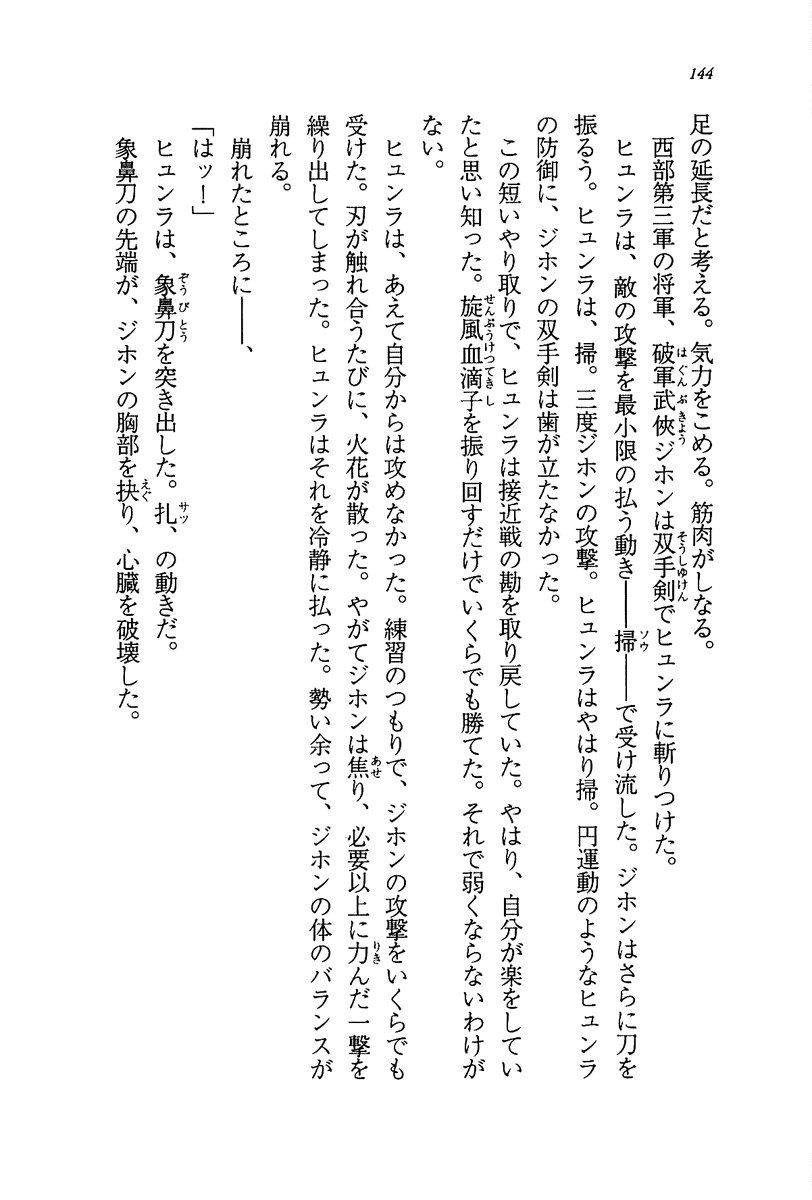 144
足の延長だと考える。気力をこめる。筋肉がしなる。
西部第三軍の将軍、破軍武俠ジホンは双手剣でヒュンラに斬りつけた。
ヒュンラは、敵の攻撃を最小限の払う動き――掃――で受け流した。ジホンはさらに刀を
振るう。ヒュンラは、掃。三度ジホンの攻撃。ヒュンラはやはり掃。円運動のようなヒュンラ
の防御に、ジホンの双手剣は歯が立たなかった。
この短いやり取りで、ヒュンラは接近戦の勘を取り戻していた。やはり、自分が楽をしてい
たと思い知った。旋風血滴子を振り回すだけでいくらでも勝てた。それで弱くならないわけが
ない。
ヒュンラは、あえて自分からは攻めなかった。練習のつもりで、ジホンの攻撃をいくらでも
受けた。刃が触れ合うたびに、火花が散った。やがてジホンは焦り、必要以上に力んだ一撃を
繰り出してしまった。ヒュンラはそれを冷静に払った。勢い余って、ジホンの体のバランスが
崩れる。
崩れたところに――、
「はッ！」
ヒュンラは、象鼻刀を突き出した。扎、の動きだ。
象鼻刀の先端が、ジホンの胸部を抉り、心臓を破壊した。